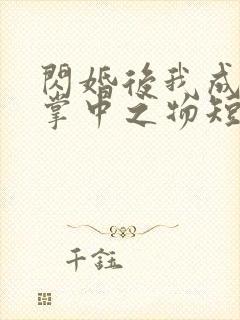 閃婚後我成
掌中之物短
千鈺